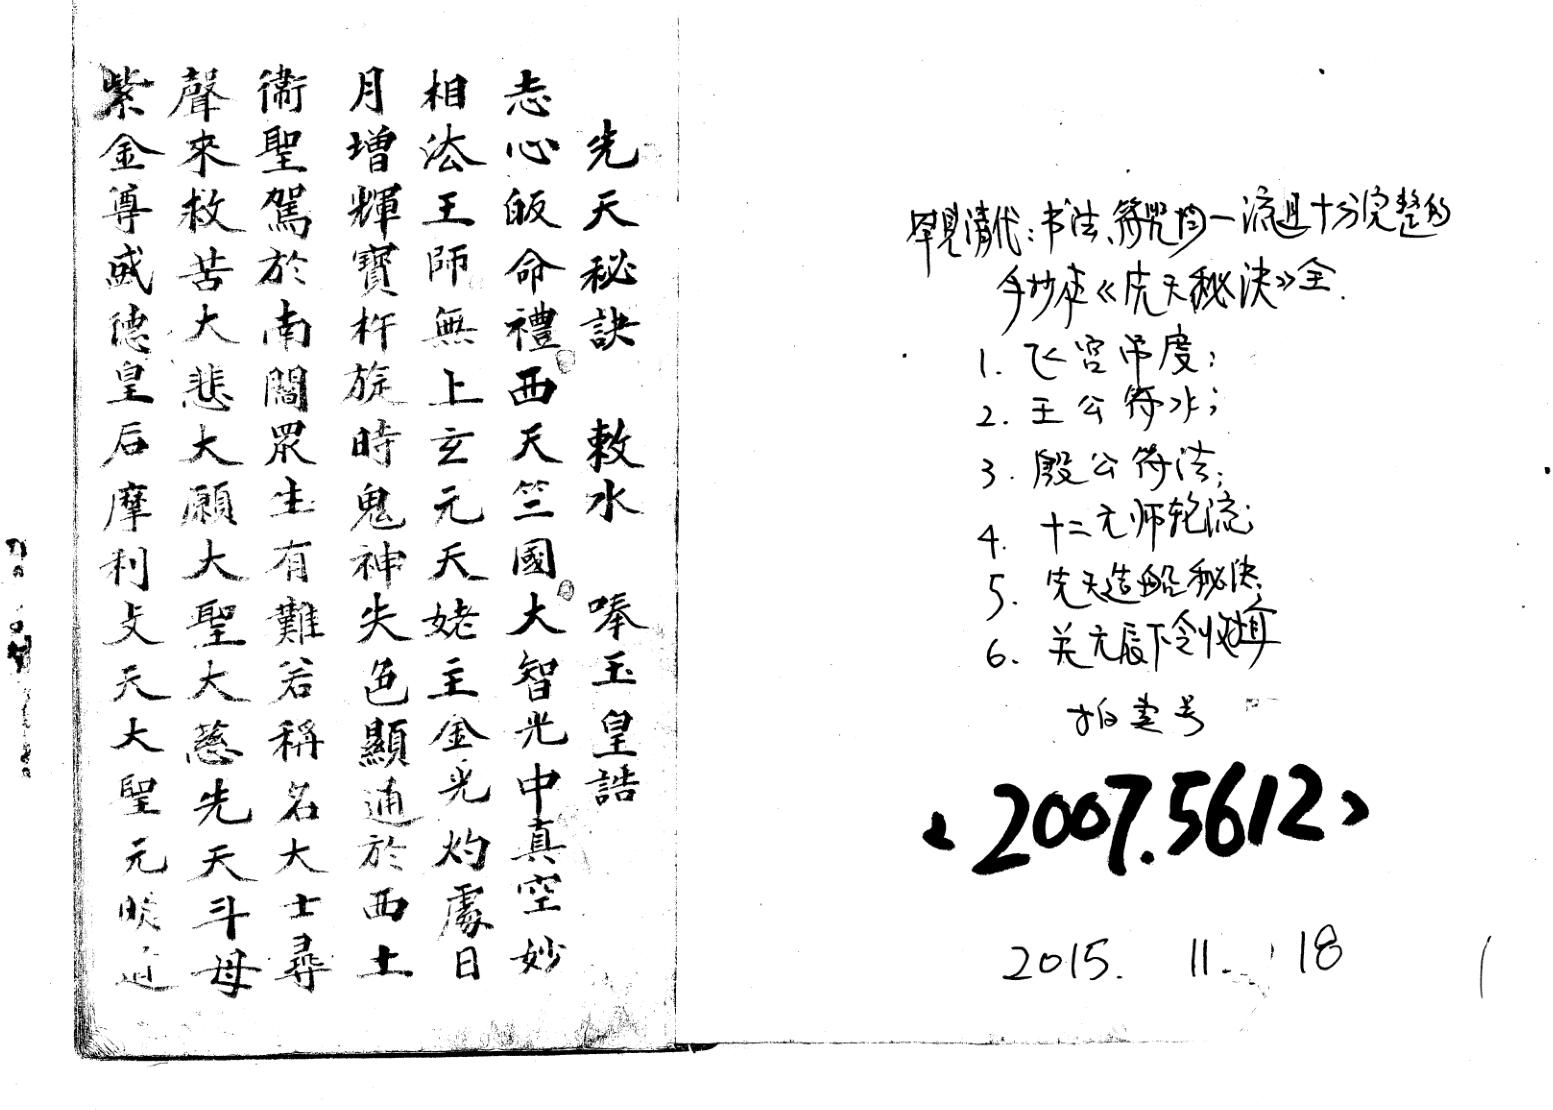 先天秘訣　敕水　唪玉皇誥
志心皈命禮西天竺國大智光中真空妙
相法王師無上玄元天姥主金光灼處日
月增輝寶杵旋時鬼神失色顯通於西土
衛聖駕於南閻眾生有難若稱名大士尋
聲來救苦大悲大願大聖大慈先天斗母
紫金尊威德皇后摩利攴天大聖元
罕見清代：书法、符咒均一流且十分完整的
手抄本《先天秘决》全.
1. 飞宫吊度；
2. 王公符水；
3. 殷公符法；
4. 十二元师轮流；
5. 先天造船秘决；
6. 关元辰下令
拍卖号
<2007.5612>
2015. 11. 18